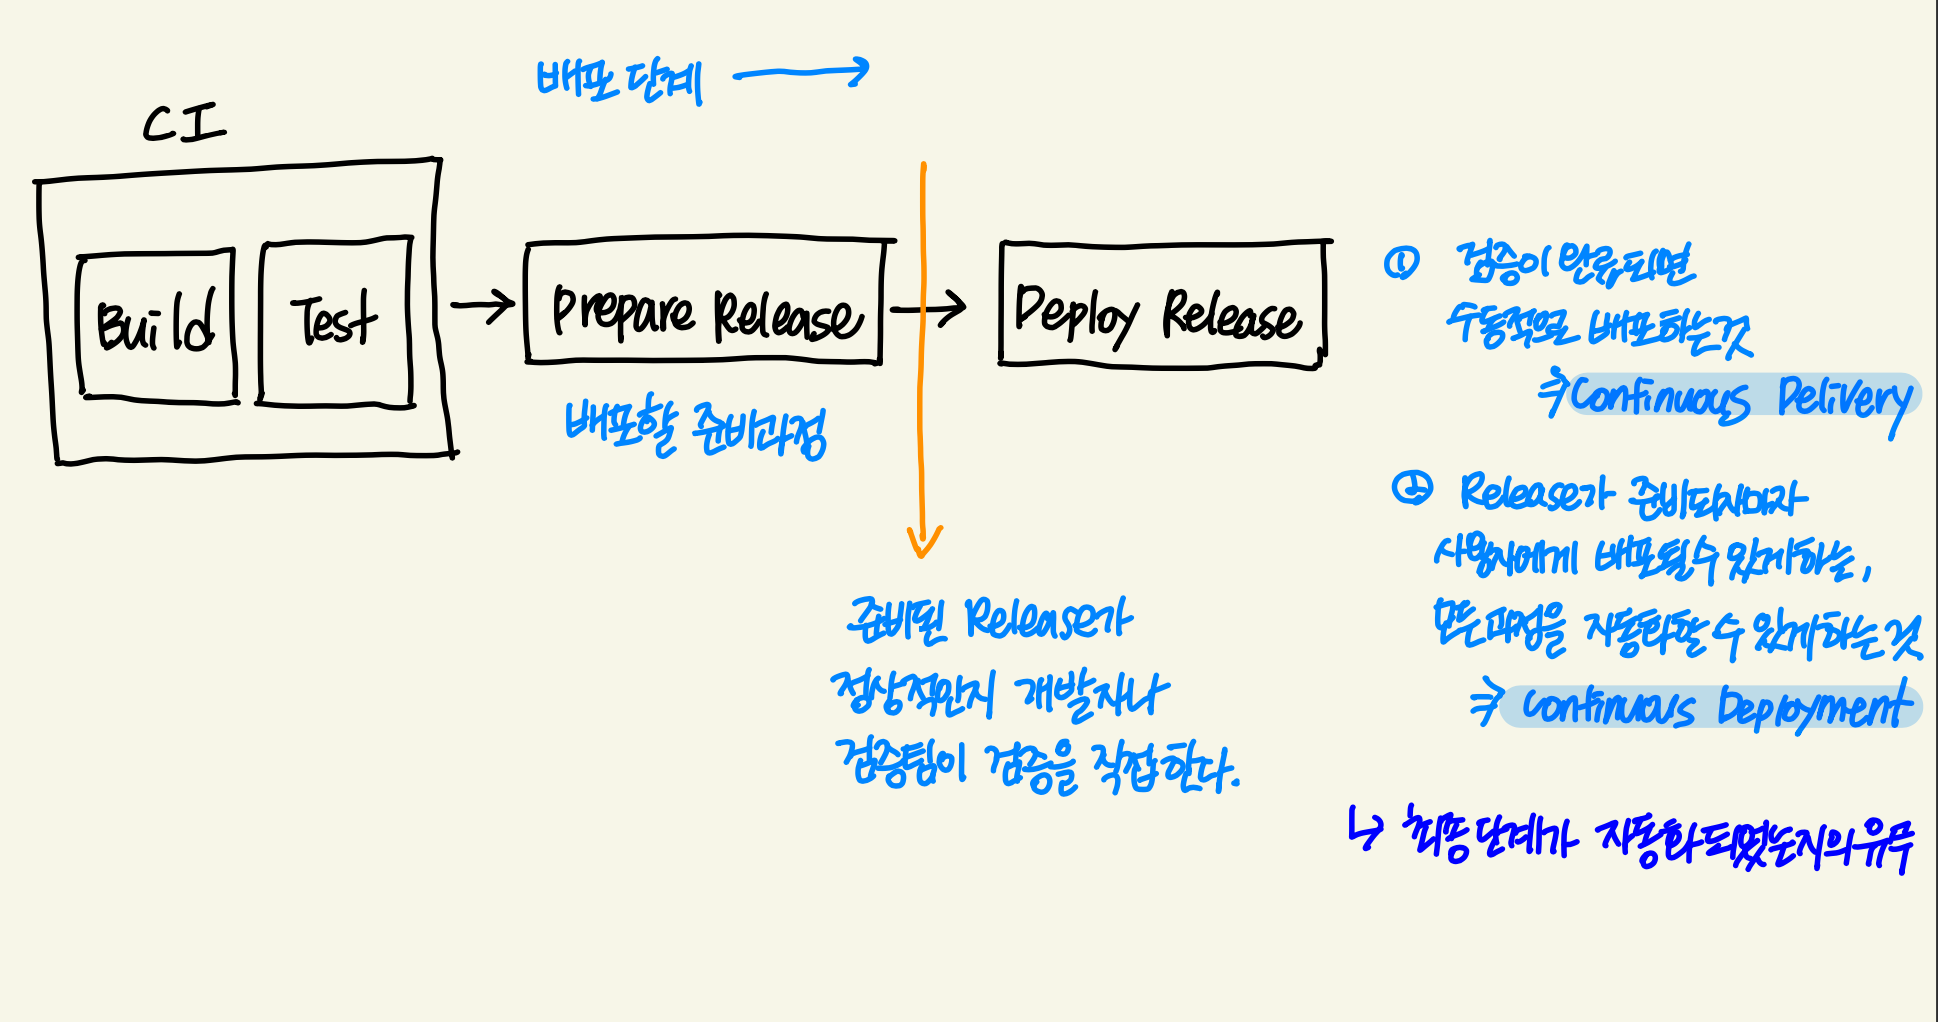 배포 단계
CI
Build
Test
Prepare Release
Deploy Release
배포할 준비과정
준비된 Release가
정상적인지 개발자나
검증팀이 검증을 직접한다.
① 검증이 완료되면
수동적으로 배포하는것
⇒ Continuous Delivery
② Release가 준비되자마자
사용자에게 배포될 수 있게하는,
모든 과정을 자동화할 수 있게하는 것
⇒ Continuous Deployment
↳ 최종단계가 자동화 되었는지의 유무